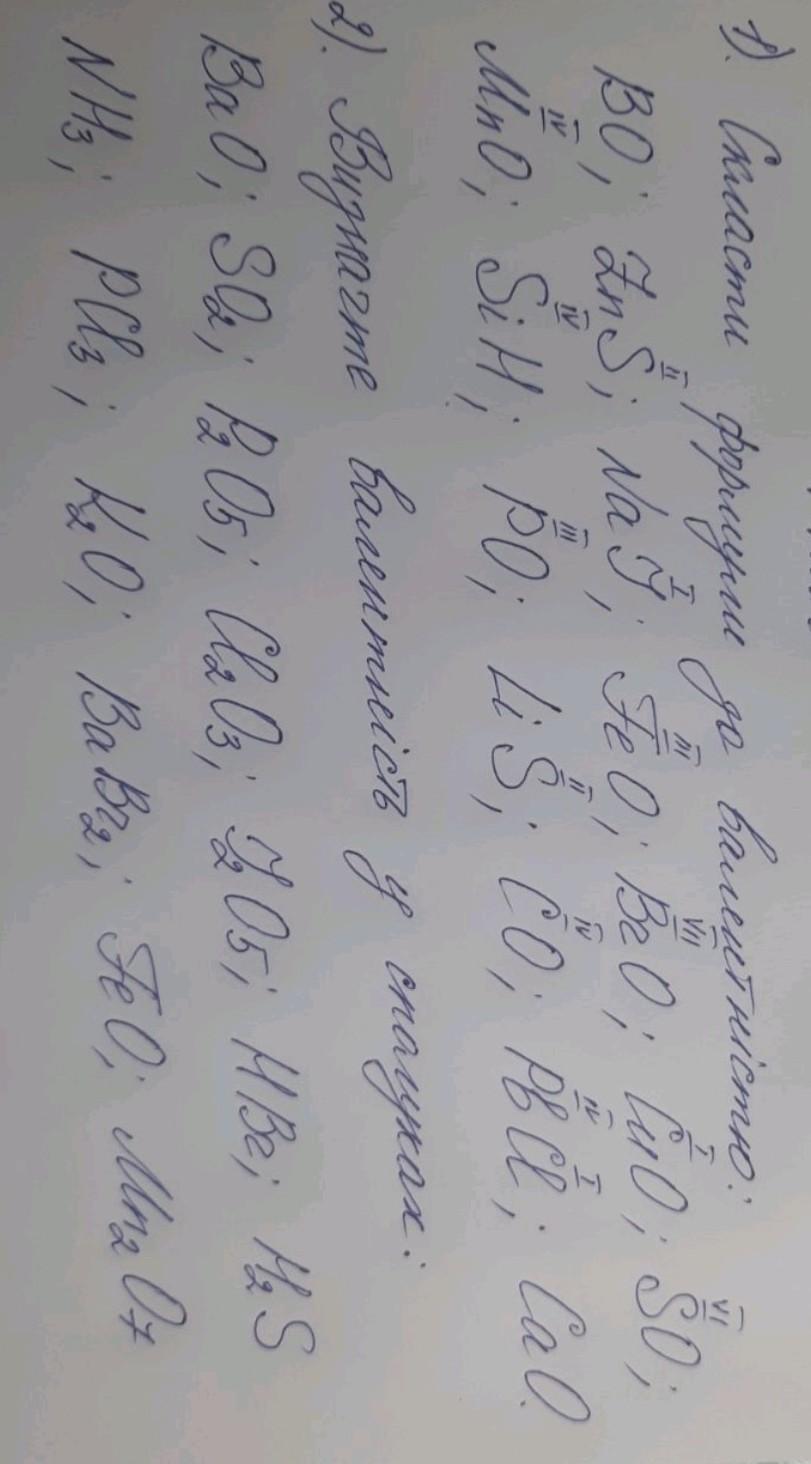 1). Скласти формули до валентністю:
BO; ZnS^II; NaJ^I; Fe^III O; Br^VII O; Cu^I O; S^VI O;
Mn^IV O; Si^IV H; P^III O; LiS^II; C^IV O; Pb^IV Cl^I; CaO
2). Визначте валентність у сполуках:
BaO; SO₂; P₂O₅; Cl₂O₃; J₂O₅; HBr; H₂S
NH₃; PCl₃; K₂O; BaBr₂; FeO; Mn₂O₇